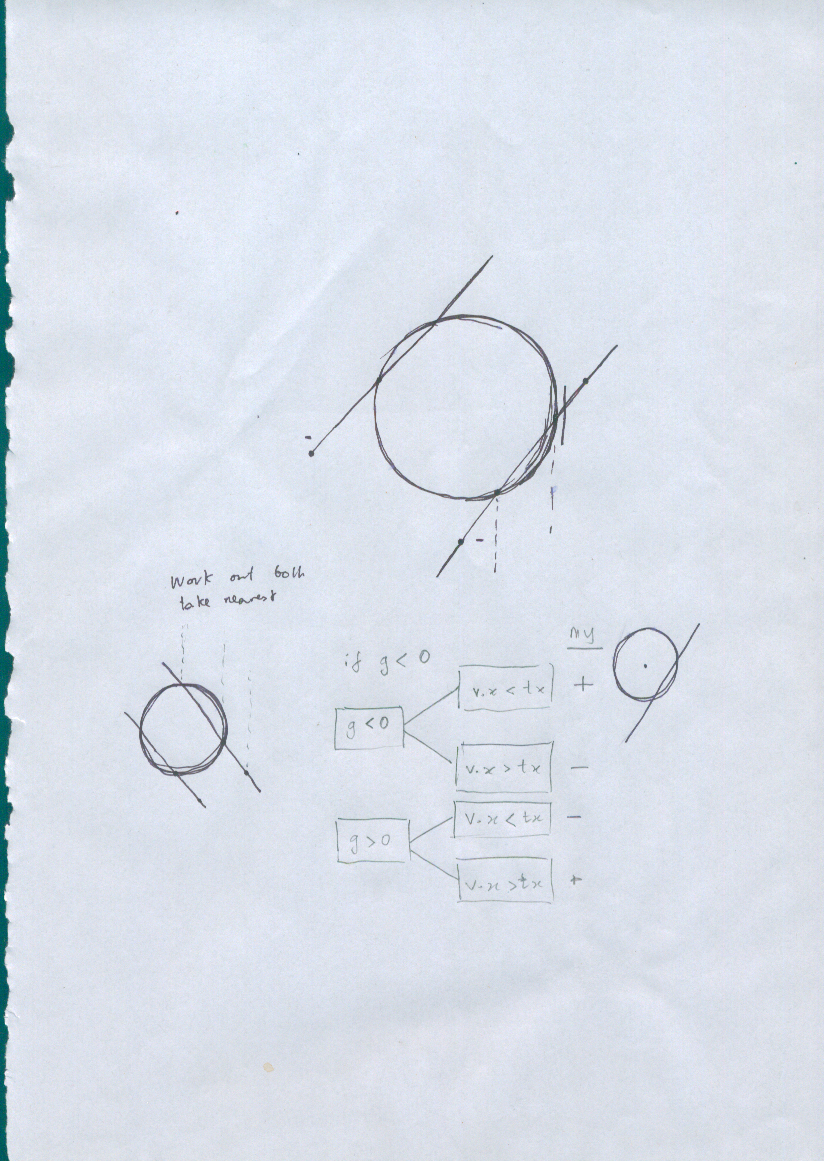 Work out both
take nearest
if g < 0
my
g < 0
v.x < tx
+
v.x > tx
-
g > 0
v.x < tx
-
v.x > tx
+
-
-